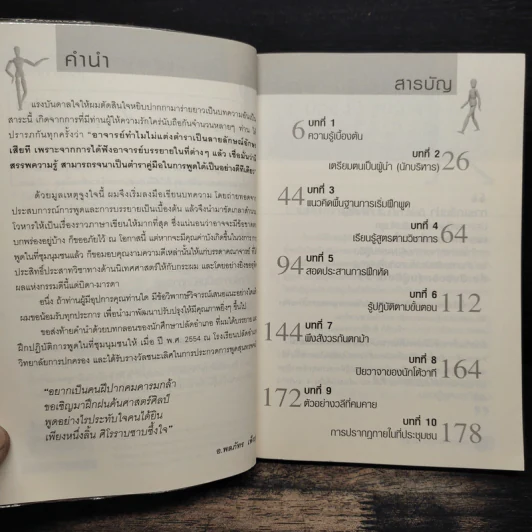 คำนำ
แรงบันดาลใจให้ผมตัดสินใจหยิบปากกามาร่ายยาวเป็นบทความอันเป็น
สาระนี้ เกิดจากการที่มีท่านผู้ให้ความรักใคร่นับถือกันจำนวนหลายๆ ท่าน ได้
ปรารภกันทุกครั้งว่า "อาจารย์ทำไมไม่แต่งตำราเป็นลายลักษณ์อักษร
เสียที เพราะจากการได้ฟังอาจารย์บรรยายในที่ต่างๆ แล้ว เชื่อมั่นว่า
สรรพความรู้ สามารถรจนาเป็นตำราคู่มือในการพูดได้เป็นอย่างดีทีเดียว"
ด้วยมูลเหตุจูงใจนี้ ผมจึงเริ่มลงมือเขียนบทความ โดยถ่ายทอดจาก
ประสบการณ์การพูดและการบรรยายเป็นเบื้องต้น แล้วจึงนำมาขัดเกลาสำนวน
โวหารให้เป็นเรื่องราวภาษาเขียนให้มากที่สุด ซึ่งแน่นอนว่าอาจจะมีข้อขาด
บกพร่องอยู่บ้าง ก็ขออภัยไว้ ณ โอกาสนี้ แต่หากจะมีคุณค่าบังเกิดขึ้นในวงการ
พูดในที่ชุมนุมชนแล้ว ก็ขอมอบคุณงามความดีเหล่านั้นให้แก่บรรดาคณาจารย์ ที่
ประสิทธิ์ประสาทวิชาทางด้านนิเทศศาสตร์ให้กับกระผม และโดยอย่างยิ่งขอ
ผลแห่งกรรมดีนี้แด่บิดา-มารดา
อนึ่ง ถ้าท่านผู้มีอุปการคุณท่านใด มีข้อวิพากษ์วิจารณ์เสนอแนะอย่างใด
ผมขอน้อมรับทุกประการ เพื่อนำมาพัฒนาปรับปรุงให้มีคุณภาพยิ่งๆ ขึ้นไป
ขอส่งท้ายคำนำด้วยบทกลอนของนักศึกษาปลัดอำเภอ ที่ผมได้บรรยาย
ฝึกปฏิบัติการพูดในที่ชุมนุมชนให้ เมื่อ ปี พ.ศ. 2554 ณ โรงเรียนปลัดอำเภอ
วิทยาลัยการปกครอง และได้รับรางวัลชนะเลิศในการประกวดการพูดสุนทรพจน์
"อยากเป็นคนฝีปากคมคารมกล้า
ขอเชิญมาฝึกฝนค้นศาสตร์ศิลป์
พูดอย่างไรประทับใจคนได้ยิน
เพียงหนึ่งลิ้น ศิโรราบซาบซึ้งใจ"
สารบัญ
บทที่ 1
6 ความรู้เบื้องต้น
บทที่ 2
เตรียมตนเป็นผู้นำ (นักบริหาร) 26
บทที่ 3
44 แนวคิดพื้นฐานการเริ่มฝึกพูด
บทที่ 4
เรียนรู้สูตรตามวิชาการ 64
บทที่ 5
94 สอดประสานการฝึกหัด
บทที่ 6
รู้ปฏิบัติตามขั้นตอน 112
บทที่ 7
144 พึงสังวรกันตกม้า
บทที่ 8
ปิยวาจาของนักโต้วาที 164
บทที่ 9
172 ตัวอย่างวลีที่คมคาย
บทที่ 10
การปรากฏกายในที่ประชุมชน 178